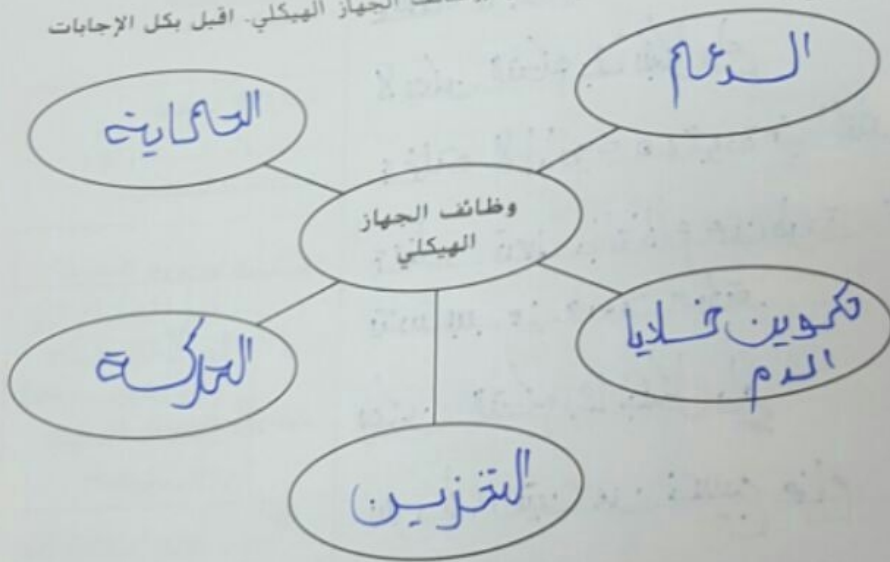 وظائف الجهاز الهيكلي. اقبل بكل الإجابات
الدعم
الحماية
وظائف الجهاز
الهيكلي
تكوين خلايا
الدم
الحركة
التخزين